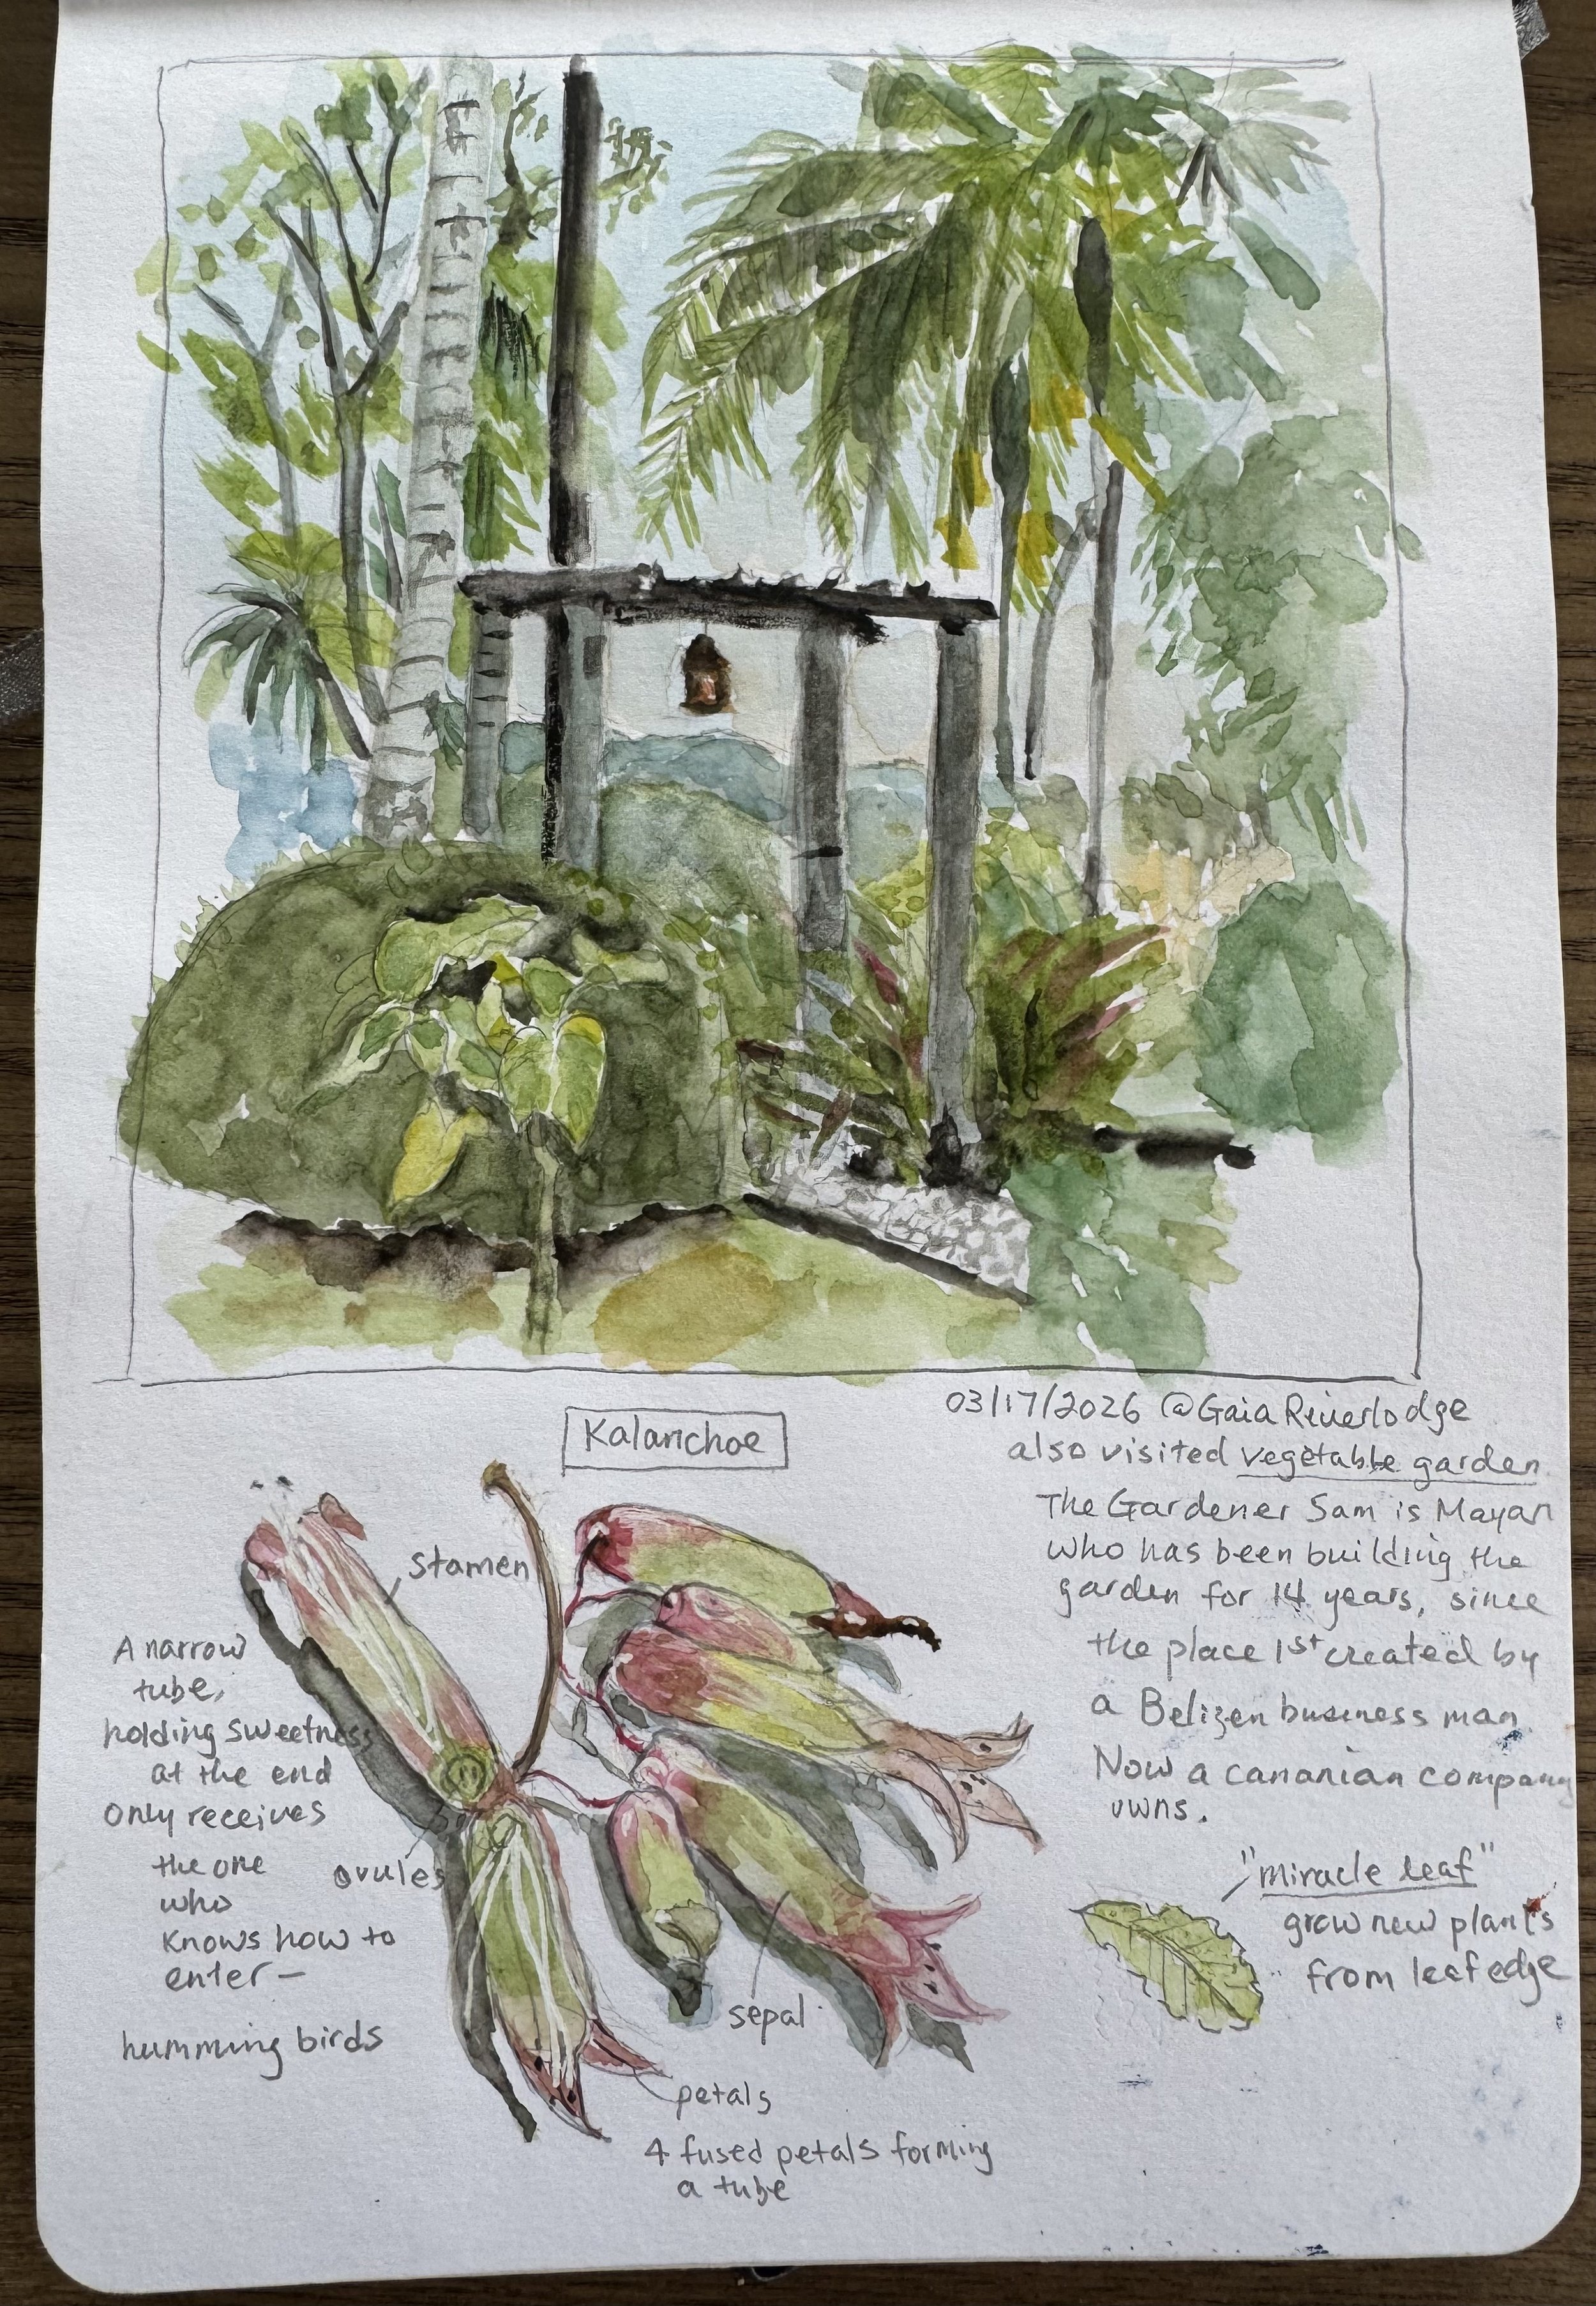 03/17/2026 @GaiaRiverlodge
also visited vegetable garden
The Gardener Sam is Mayan
who has been building the
garden for 14 years, since
the place 1st created by
a Belizen business man
Now a cananian company
owns.
Kalanchoe
stamen
A narrow
tube,
holding sweetness
at the end
only receives
the one
who
knows how to
enter —
humming birds
ovules
sepal
petals
4 fused petals forming
a tube
"miracle leaf"
grow new plants
from leaf edge